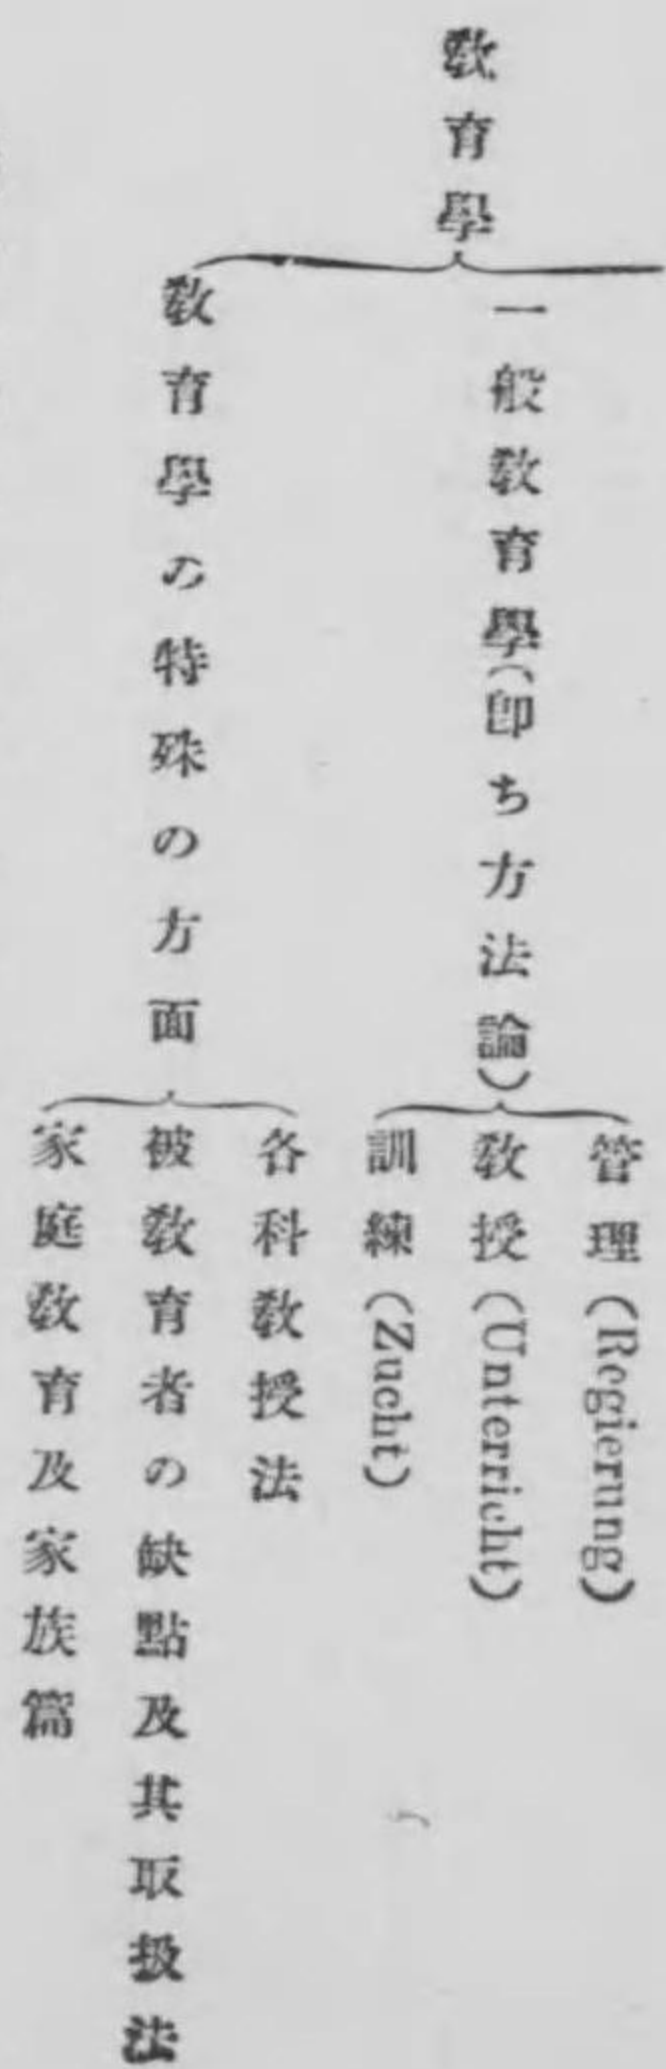 敎育學
一般敎育學(卽ち方法論)
管理(Regierung)
敎授(Unterricht)
訓練(Zucht)
敎育學の特殊の方面
各科敎授法
被敎育者の缺點及其取扱法
家庭敎育及家族篇